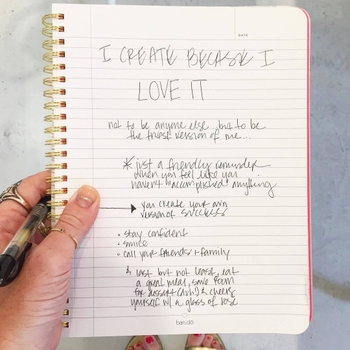 DATE
I CREATE BECASE I
LOVE IT
not to be anyone else, but to be
the truest version of me.
*just a friendly reminder
when you feel like you
haven't accomplished anything
you create your own
version of success
• stay confident
• smile
• call your friends + family
& last but not least, eat
a great meal, save room
for dessert (duh!) & cheers
yourself w/ a glass of rosé
ban.do